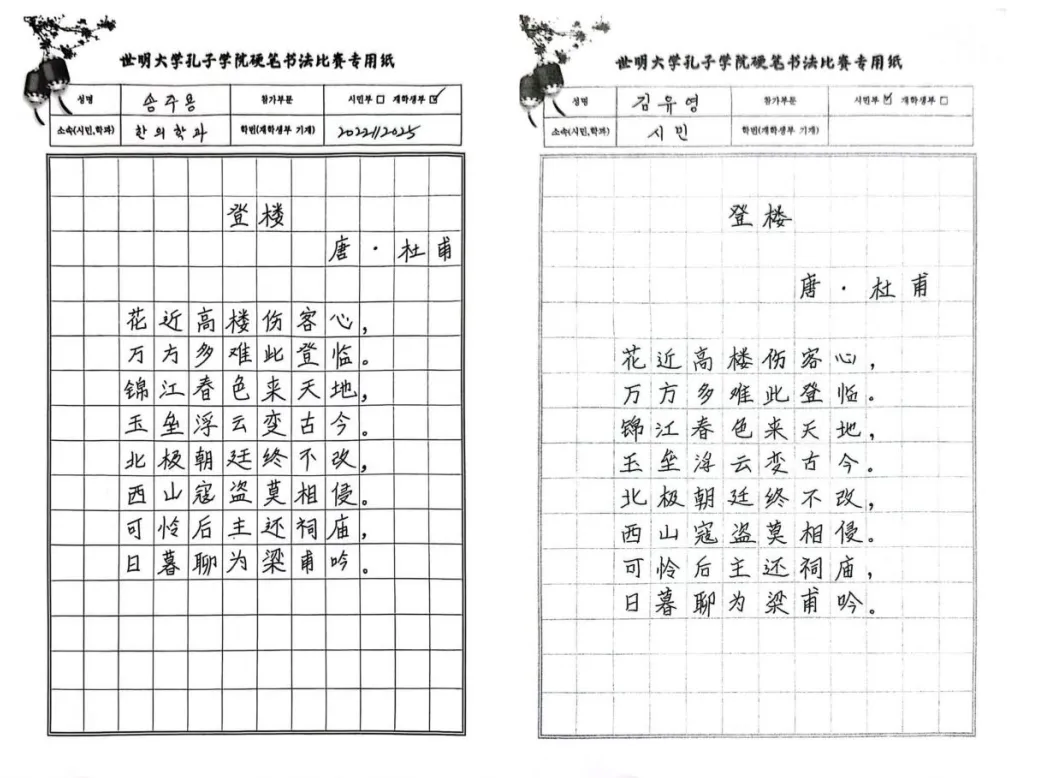 世明大学孔子学院硬笔书法比赛专用纸
성명 송주용 참가부문 시민부 □ 재학생부 ☑
소속(시민,학과) 한의학과 학번(재학생부 기재) 2022112025
登楼
唐·杜甫
花近高楼伤客心，
万方多难此登临。
锦江春色来天地，
玉垒浮云变古今。
北极朝廷终不改，
西山寇盗莫相侵。
可怜后主还祠庙，
日暮聊为梁甫吟。
世明大学孔子学院硬笔书法比赛专用纸
성명 김유영 참가부문 시민부 ☑ 재학생부 □
소속(시민,학과) 시민 학번(재학생부 기재)
登楼
唐·杜甫
花近高楼伤客心，
万方多难此登临。
锦江春色来天地，
玉垒浮云变古今。
北极朝廷终不改，
西山寇盗莫相侵。
可怜后主还祠庙，
日暮聊为梁甫吟。